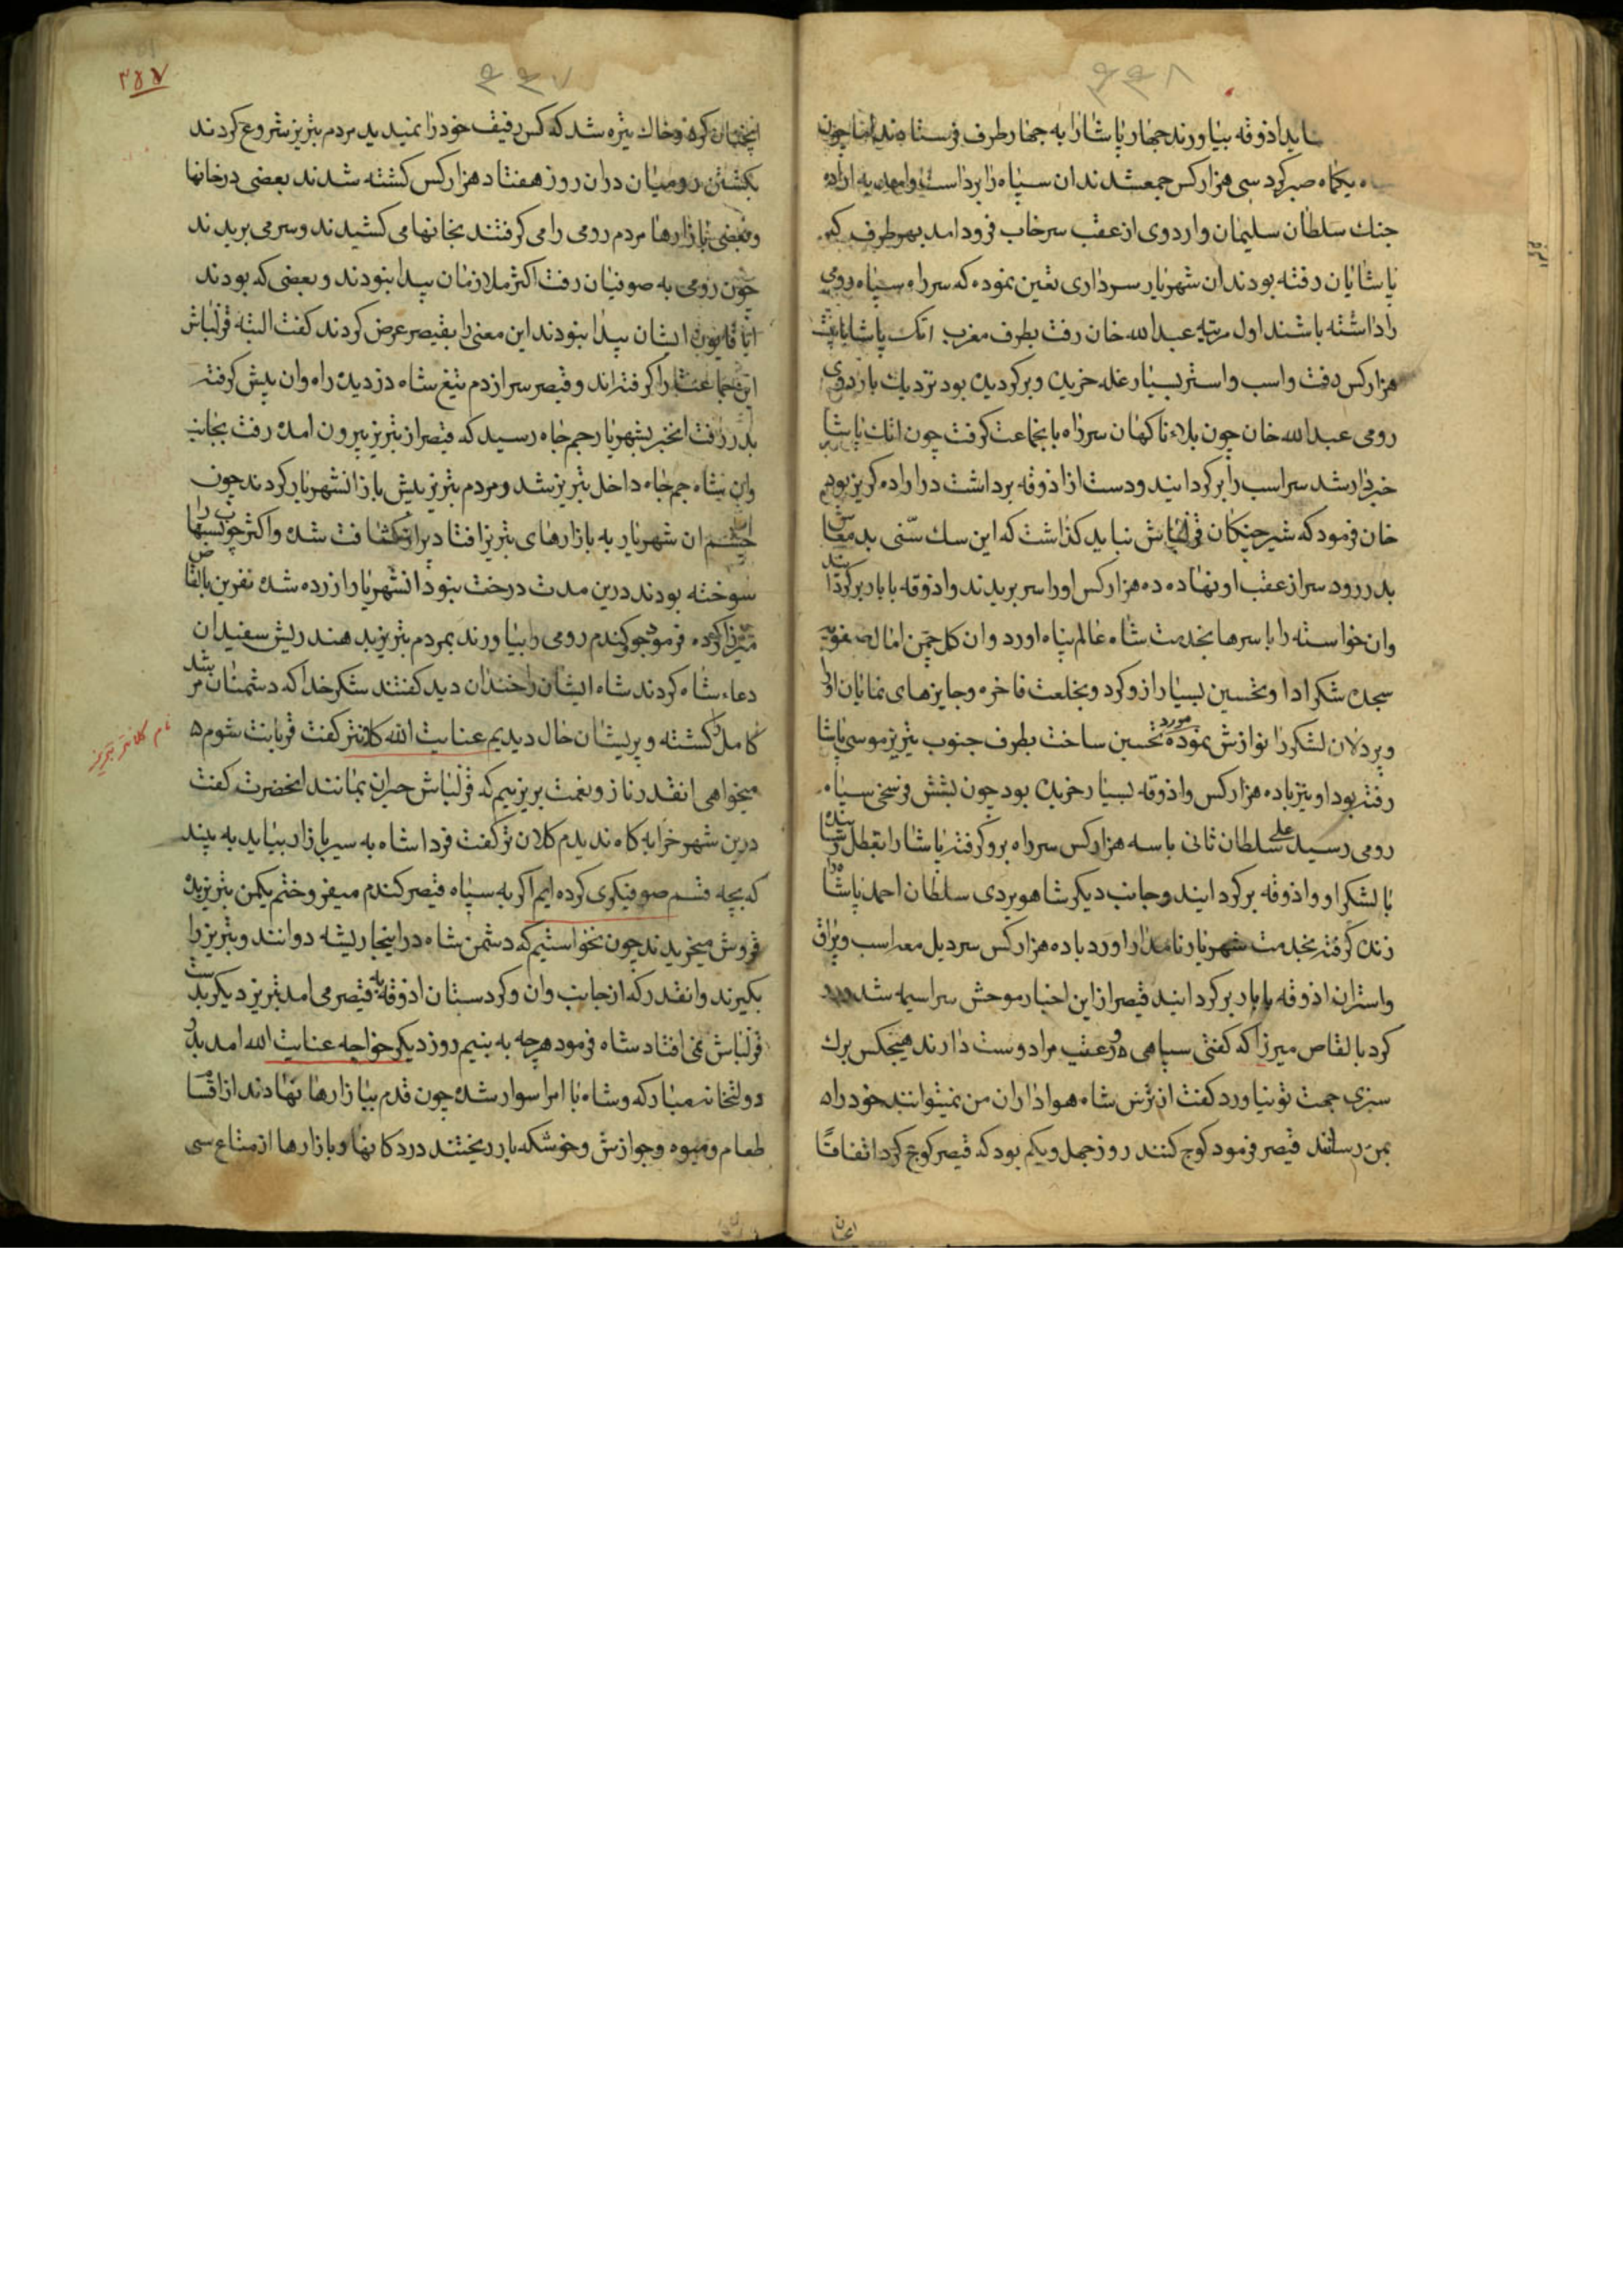 ۴۴۸
باید اذوقه بیاورند چهار پاشا را به چهار طرف فرستادند اما چون
یکماه صبر کرد سی هزار کس جمعشدند ان سپاه را برداشت و امد به اراده
جنك سلطان سلیمان و اردوی از عقب سرخاب فرود امد بهر طرف که
پاشایان رفته بودند ان شهریار سرداری تعین نموده که سر راه سپاه رومی
را داشته باشند اول مرتبه عبدالله خان رفت بطرف مغرب اتك پاشا با بیست
هزار کس رفت و اسب و استر بسیار غله خریده و برکردیده بود نزدیك باردوی
رومی عبدالله خان چون بلاء ناکهان سر راه بانجماعت کرفت چون اتك پاشا
خبردار شد سر اسب را برکردانید و دست از اذوقه برداشت در اراده کریز بود
خان فرمود که شیر جنکان قزلباش نباید کذاشت که این سك سنی بد معاش
بدر رود سر از عقب او نهاده ده هزار کس او را سر بریدند و اذوقه با بار برکرداندند
وان خواسته را با سرها بخدمت شاه عالم پناه اورد وان کل چمن امال صفویه
سجده شکر ادا و تحسین بسیار ازو کرد و بخلعت فاخره و جایزهای نمایان او را
و پر دلان لشکر را نوازش نموده مورد تحسین ساخت بطرف جنوب تبریز موسی پاشا
رفته بود او نیز باده هزار کس و اذوقه بسیار خریده بود چون بشش فرسخی سپاه
رومی رسید علی سلطان ثانی با سه هزار کس سر راه برو کرفته پاشا را بقطل رسانیده
با لشکر او و اذوقه برکردانید و جانب دیکر شاهویردی سلطان احمد پاشا را
زنده کرفته بخدمت شهریار نامدار اورد باده هزار کس سر دیل معه اسب و یراق
و استران اذوقه با بار برکردانید قیصر از این اخبار موحش سراسیمه شد
کرد بالقاص میرزا که کفتی سپاهی و رعیت مرا دوست دارند هیچکس برك
سبزی جهت تو نیاورد کفت از ترس شاه هواداران من نمیتوانند خود را
بمن رسانند قیصر فرمود کوچ کنند روز چهل و یکم بود که قیصر کوچ کرد اتفاقاً
۴۴۷
انچنان کرد و خاك تیره شد که کس رفیق خود را نمیدید مردم تبریز شروع کردند
بکشتن رومیان دران روز هفتاد هزار کس کشته شدند بعضی در خانها
و بعضی بازارها مردم رومی را می کرفتند بخانها می کشیدند و سر می بریدند
چون رومی به صوفیان رفت اکثر ملازمان پیدا نبودند و بعضی که بودند
اقایون ایشان پیدا نبودند این معنی را بقیصر عرض کردند کفت البته قزلباش
این جماعت را کرفته‌اند و قیصر سر از دم تیغ شاه دزدیده راه وان پیش کرفته
بدر رفت انخبر بشهریار جم جاه رسید که قیصر از تبریز بیرون امده رفت بجانب
وان شاه جم جاه داخل تبریز شد و مردم تبریز پیش باز انشهریار کردند چون
چشم ان شهریار به بازارهای تبریز افتاد پر از کثافت شده و اکثر چوبها را
سوخته بودند درین مدت درخت نبود انشهریار ازرده شده نفرین بالقاص
میرزا کرده فرمود جو کندم رومی را بیاورند بمردم تبریز بدهند ریش سفیدان
دعاء شاه کردند شاه ایشان را خندان دید کفتند شکر خدا که دشمنان مرشد
کامل را کشته و پریشان حال دیدیم عنایت الله کلانتر کفت قربانت شوم
میخواهی انقدر ناز و نعمت بریزیم که قزلباش حیران بمانند انحضرت کفت
درین شهر خرابه کاه ندیدم کلانتر کفت فردا شاه به سیر بازار بیاید به بیند
که بچه قسم صوفیکری کرده‌ایم اکر به سپاه قیصر کندم میفروختم یکمن تبریز بده
قروش میخریدند چون نخواستیم که دشمن شاه در اینجا ریشه دوانند و تبریز را
بکیرند وانقدر که از جانب وان و کردستان اذوقه به قیصر می امد تبریز دیکر بدست
قزلباش نمی افتاد شاه فرمود هرچه به بینیم روز دیکر خواجه عنایت الله امد بدر
دولتخانه مبارکه و شاه با امرا سوار شده چون قدم ببازارها نهادند از اقسام
طعام و میوه و خوشکه بار ریختند در دکانها و بازارها از متاع سی
نام کلانتر تبریز